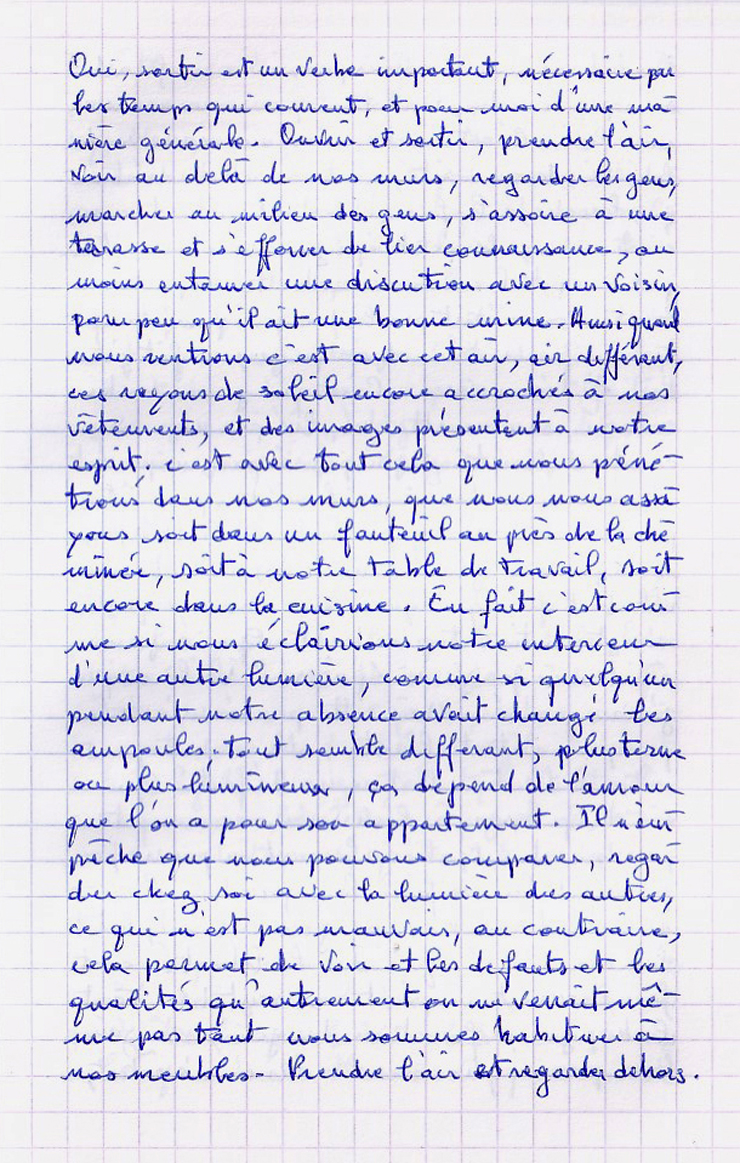 Oui, sortir est un verbe important, nécessaire par
les temps qui courent, et pour moi d'une ma
nière générale. Ouvrir et sortir, prendre l'air,
voir au delà de nos murs, regarder les gens,
marcher au milieu des gens, s'assoire à une
terasse et s'efforcer de lier connaissance, ou
moins entamer une discution avec un voisin,
pour peu qu'il ait une bonne mine. Ainsi quand
nous rentrons c'est avec cet air, air différent,
ces rayons de soleil encore accrochés à nos
vêtements, et des images présentent à notre
esprit, c'est avec tout cela que nous péné-
trons dans nos murs, que nous nous assé
yons soit dans un fauteuil au près de la che
minée, soit à notre table de travail, soit
encore dans la cuisine. En fait c'est com-
me si nous éclairions notre interieur
d'une autre lumière, comme si quelqu'un
pendant notre absence avait changé les
ampoules, tout semble different, plus terne
ou plus lumineux, ça dépend de l'amour
que l'on a pour son appartement. Il n'em-
pêche que nous pouvons comparer, regar-
der chez soi avec la lumière des autres,
ce qui n'est pas mauvais, au contraire,
cela permet de voir et les defauts et les
qualités qu'autrement on ne verrait mê-
me pas tant nous sommes habituer à
nos meubles - Prendre l'air et regarder dehors.